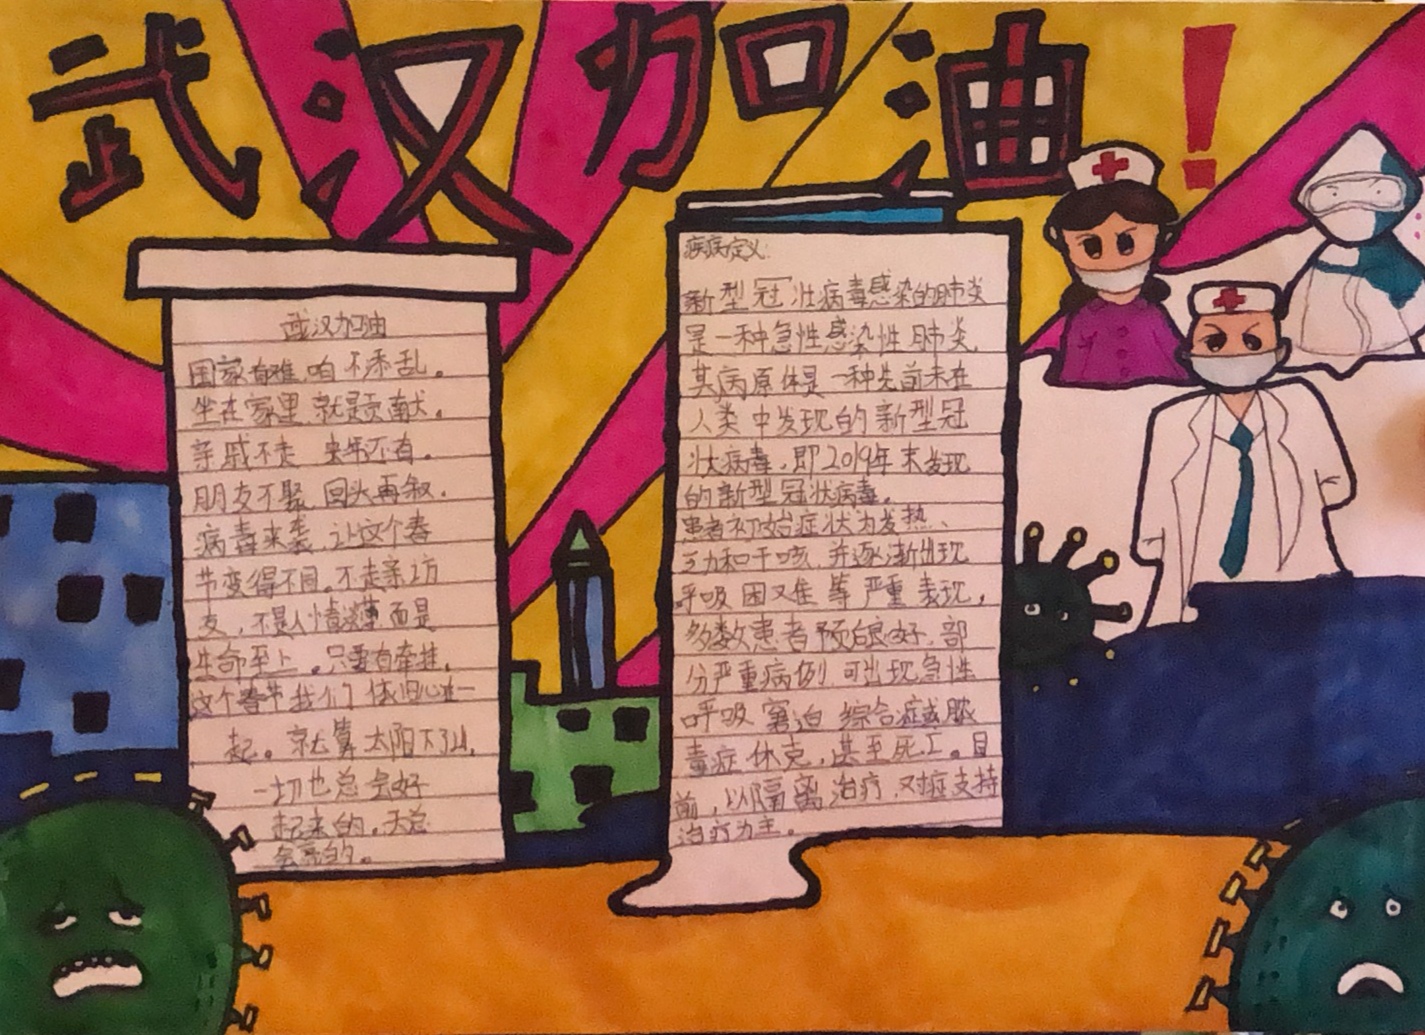 武汉加油！
武汉加油
国家有难,咱不添乱。
坐在家里,就是贡献。
亲戚不走 来年还有。
朋友不聚 回头再叙。
病毒来袭,让这个春
节变得不同。不走亲访
友,不是人情淡薄而是
生命至上。只要有牵挂,
这个春节我们依旧心在一
起。就算太阳下了山,
一切也总会好
起来的。天总
会亮的。
疾病定义:
新型冠状病毒感染的肺炎
是一种急性感染性肺炎,
其病原体是一种先前未在
人类中发现的新型冠
状病毒,即2019年末发现
的新型冠状病毒。
患者初始症状为发热、
乏力和干咳,并逐渐出现
呼吸困难等严重表现,
多数患者预后良好,部
分严重病例可出现急性
呼吸窘迫综合症或脓
毒症休克,甚至死亡。目
前,以隔离治疗、对症支持
治疗为主。